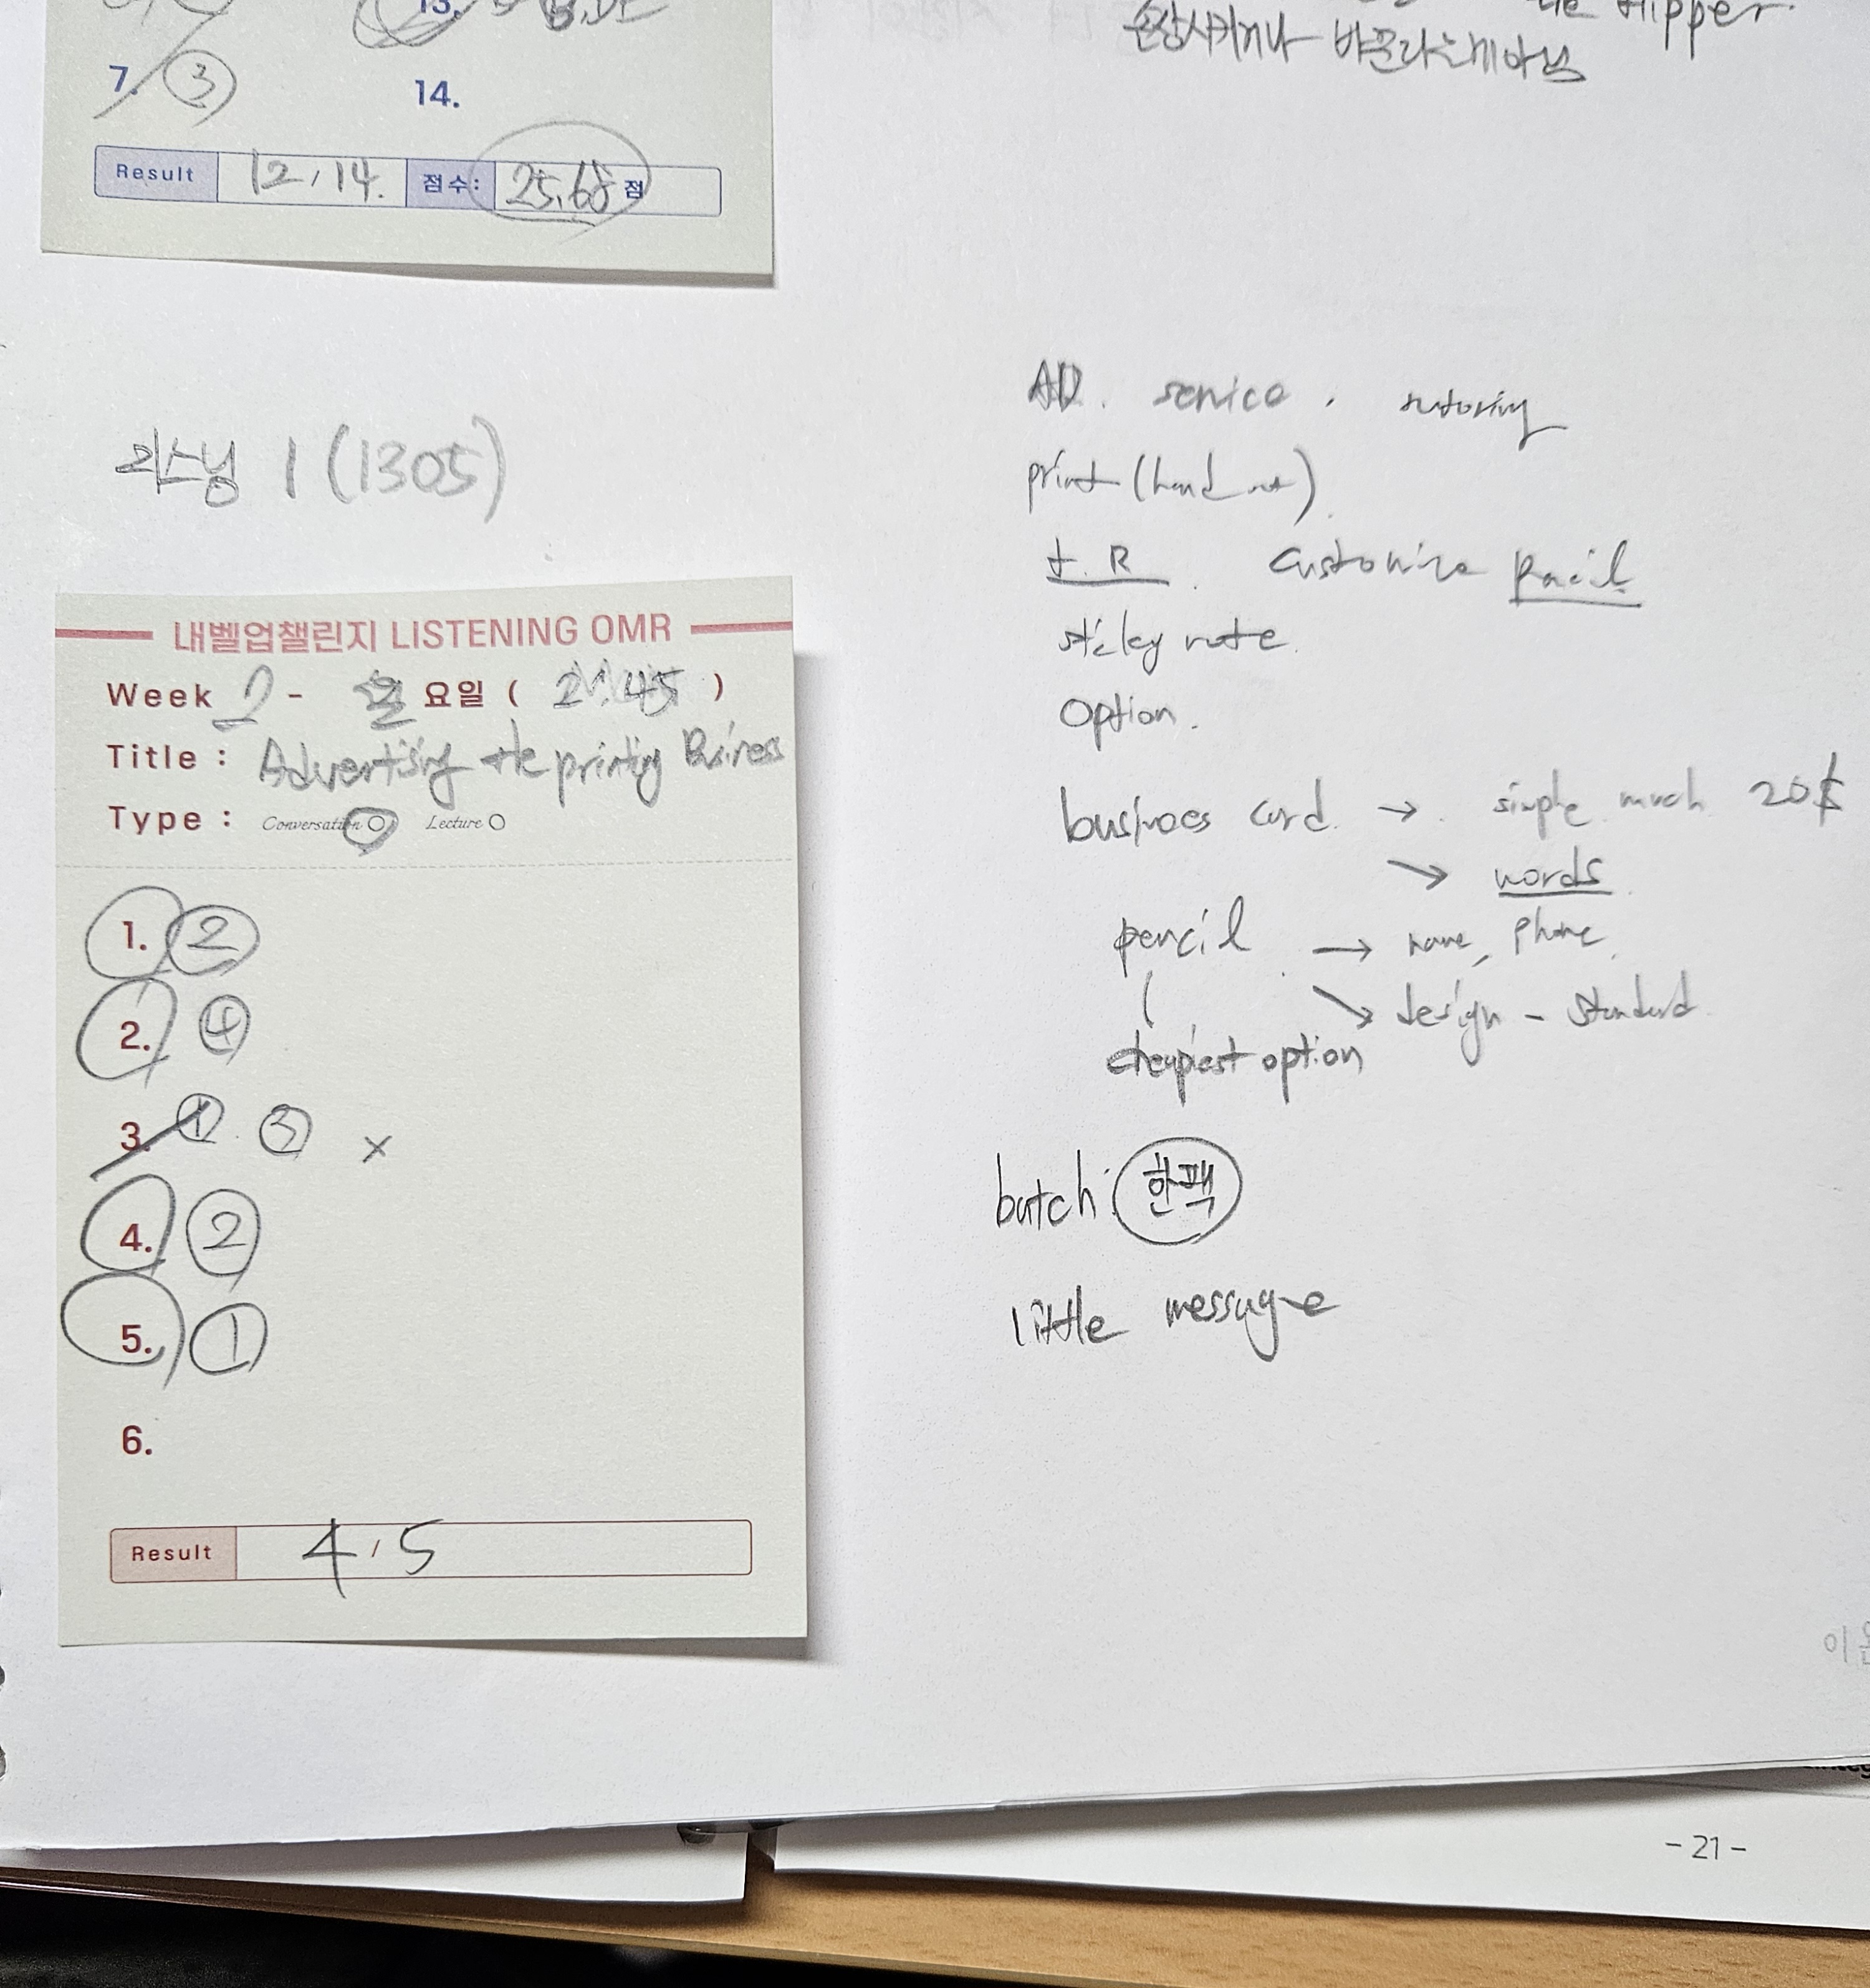 7. ③
14.
Result 12/14. 점수: 25.68 점
the flipper.
손상시키거나 바꾼다는게아님
리스닝 1 (1305)
내벨업챌린지 LISTENING OMR
Week 2 - 월요일 ( 21:45 )
Title : Advertising the printing Business
Type : Conversation O Lecture O
1. ②
2. ④
3. ① ③ ×
4. ②
5. ①
6.
Result 4/5
AD. service. tutoring
print (hand out).
t.R. customize pencil
sticky note.
option.
business card. → simple much 20$
→ words
pencil → name, phone,
→ design - standard
cheapest option
batch: 한팩
little message
- 21 -